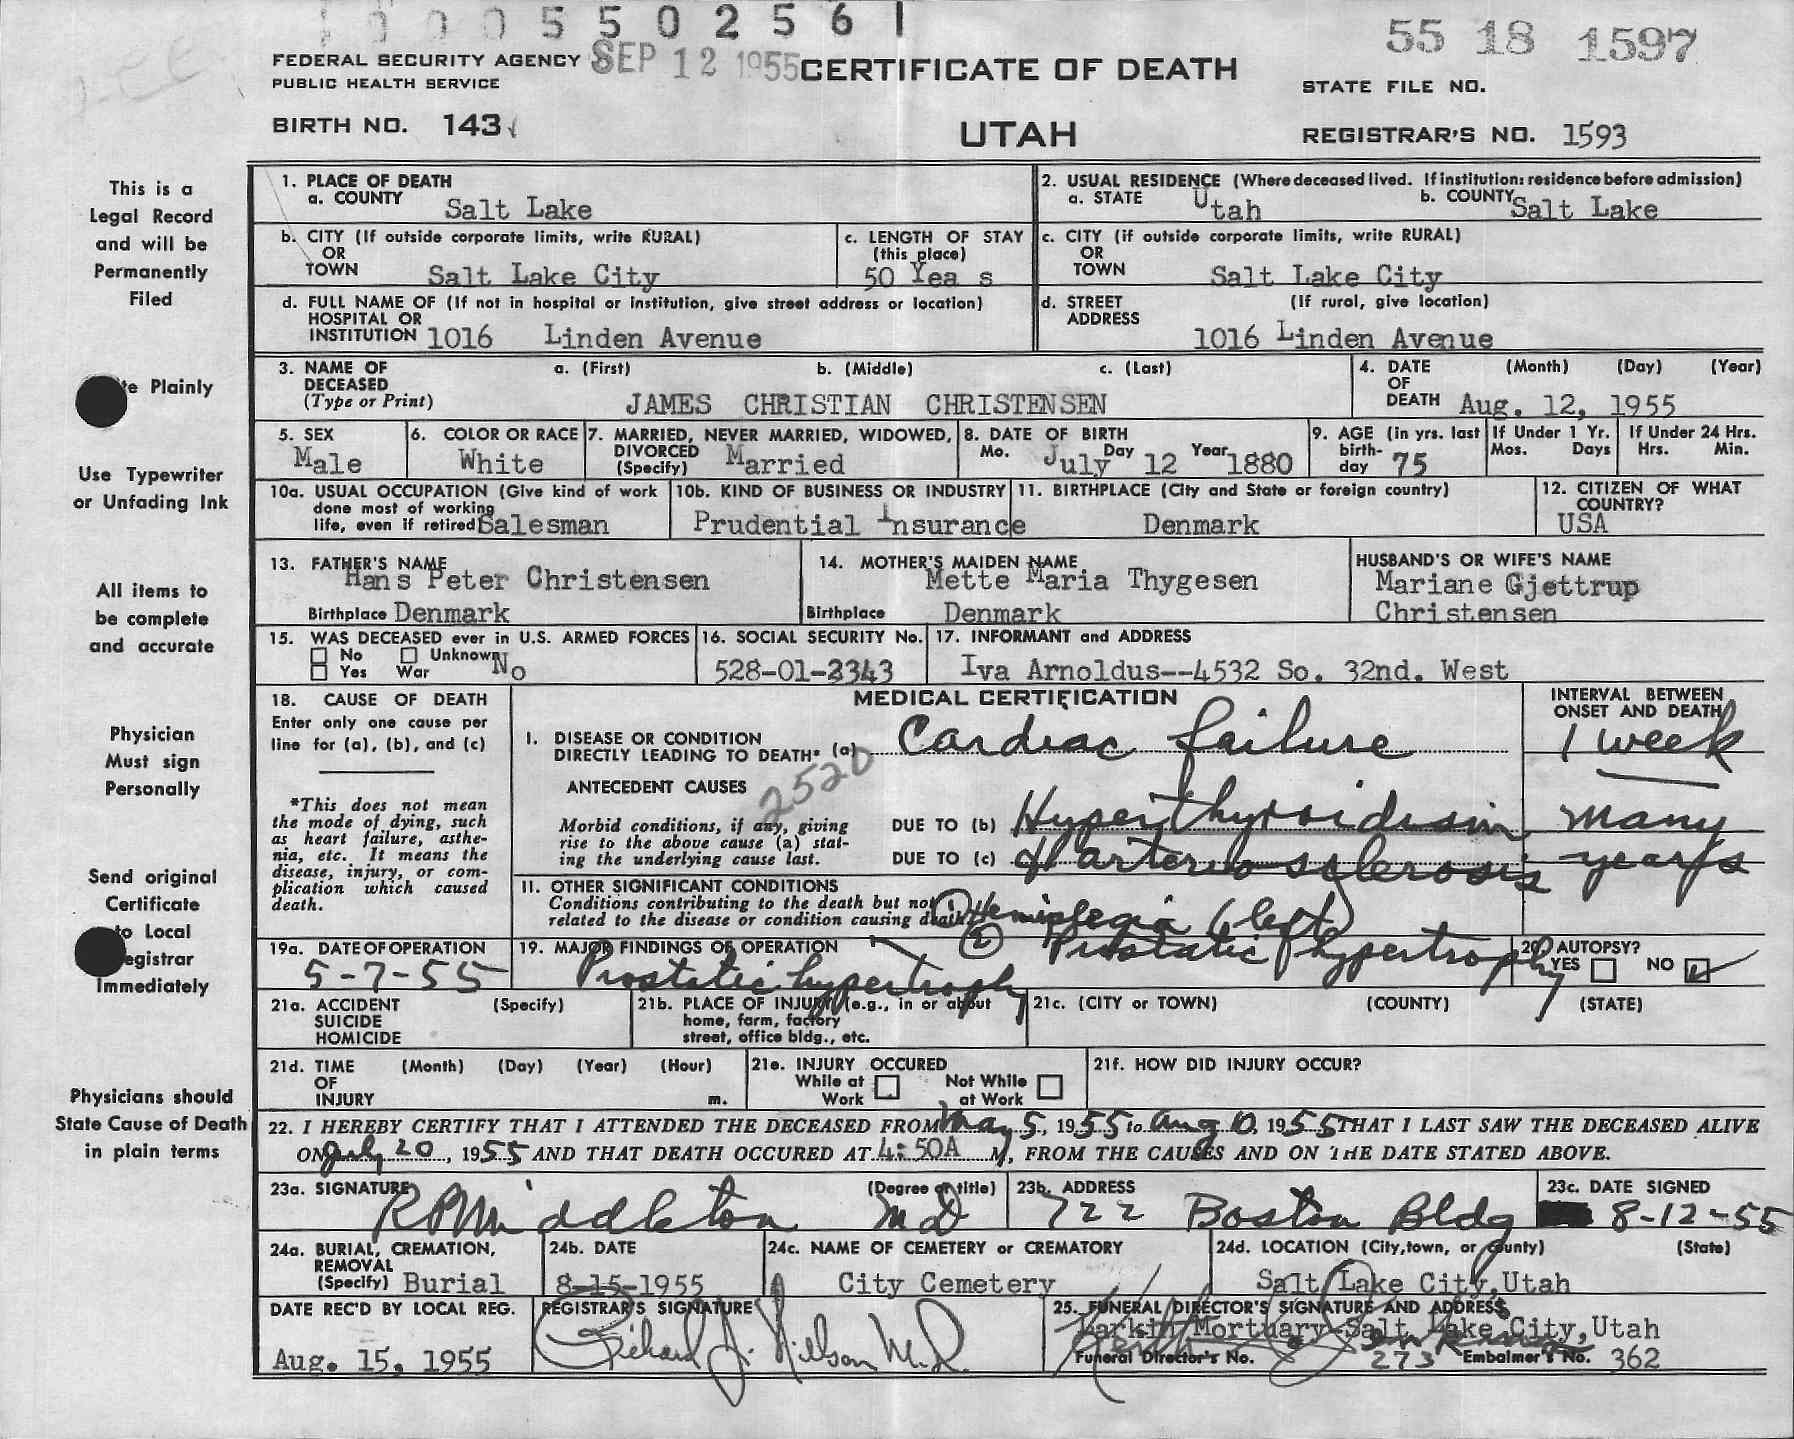 0 0 0 5 5 0 2 5 6 1
55 18 1597
FEDERAL SECURITY AGENCY SEP 12 1955 CERTIFICATE OF DEATH
PUBLIC HEALTH SERVICE
STATE FILE NO.
BIRTH NO. 143
UTAH
REGISTRAR'S NO. 1593
This is a
Legal Record
and will be
Permanently
Filed
1. PLACE OF DEATH
a. COUNTY Salt Lake
2. USUAL RESIDENCE (Where deceased lived. If institution: residence before admission)
a. STATE Utah b. COUNTY Salt Lake
b. CITY (If outside corporate limits, write RURAL)
OR
TOWN Salt Lake City
c. LENGTH OF STAY
(this place)
50 Yea s
c. CITY (if outside corporate limits, write RURAL)
OR
TOWN Salt Lake City
d. FULL NAME OF (If not in hospital or institution, give street address or location)
HOSPITAL OR
INSTITUTION 1016 Linden Avenue
d. STREET (If rural, give location)
ADDRESS
1016 Linden Avenue
te Plainly
3. NAME OF a. (First) b. (Middle) c. (Last)
DECEASED
(Type or Print) JAMES CHRISTIAN CHRISTENSEN
4. DATE (Month) (Day) (Year)
OF
DEATH Aug. 12, 1955
Use Typewriter
or Unfading Ink
5. SEX
Male
6. COLOR OR RACE
White
7. MARRIED, NEVER MARRIED, WIDOWED,
DIVORCED
(Specify) Married
8. DATE OF BIRTH
Mo. July Day 12 Year 1880
9. AGE (in yrs. last
birth-
day 75
If Under 1 Yr.
Mos. Days
If Under 24 Hrs.
Hrs. Min.
10a. USUAL OCCUPATION (Give kind of work
done most of working
life, even if retired) Salesman
10b. KIND OF BUSINESS OR INDUSTRY
Prudential Insurance
11. BIRTHPLACE (City and State or foreign country)
Denmark
12. CITIZEN OF WHAT
COUNTRY?
USA
All items to
be complete
and accurate
13. FATHER'S NAME
Hans Peter Christensen
Birthplace Denmark
14. MOTHER'S MAIDEN NAME
Mette Maria Thygesen
Birthplace Denmark
HUSBAND'S OR WIFE'S NAME
Mariane Gjettrup
Christensen
15. WAS DECEASED ever in U.S. ARMED FORCES
No Unknown No
Yes War
16. SOCIAL SECURITY No.
528-01-2343
17. INFORMANT and ADDRESS
Iva Arnoldus--4532 So. 32nd. West
Physician
Must sign
Personally
18. CAUSE OF DEATH
Enter only one cause per
line for (a), (b), and (c)
*This does not mean
the mode of dying, such
as heart failure, asthe-
nia, etc. It means the
disease, injury, or com-
plication which caused
death.
MEDICAL CERTIFICATION
I. DISEASE OR CONDITION
DIRECTLY LEADING TO DEATH* (a) Cardiac failure
INTERVAL BETWEEN
ONSET AND DEATH
1 week
ANTECEDENT CAUSES 2520
Morbid conditions, if any, giving
rise to the above cause (a) stat-
ing the underlying cause last.
DUE TO (b) Hyperthyroidism many
DUE TO (c) & arteriosclerosis years
Send original
Certificate
to Local
egistrar
Immediately
11. OTHER SIGNIFICANT CONDITIONS
Conditions contributing to the death but not
related to the disease or condition causing death. (1) Hemiplegia (left)
(2) Prostatic hypertrophy
19a. DATE OF OPERATION
5-7-55
19. MAJOR FINDINGS OF OPERATION
Prostatic hypertrophy
20. AUTOPSY?
YES NO
21a. ACCIDENT (Specify)
SUICIDE
HOMICIDE
21b. PLACE OF INJURY (e.g., in or about
home, farm, factory
street, office bldg., etc.
21c. (CITY or TOWN) (COUNTY) (STATE)
21d. TIME (Month) (Day) (Year) (Hour)
OF
INJURY m.
21e. INJURY OCCURED
While at Not While
Work at Work
21f. HOW DID INJURY OCCUR?
Physicians should
State Cause of Death
in plain terms
22. I HEREBY CERTIFY THAT I ATTENDED THE DECEASED FROM May 5, 1955 to Aug 10, 1955 THAT I LAST SAW THE DECEASED ALIVE
ON July 20, 1955 AND THAT DEATH OCCURED AT 4:50A M, FROM THE CAUSES AND ON THE DATE STATED ABOVE.
23a. SIGNATURE (Degree or title)
R P Middleton MD
23b. ADDRESS
722 Boston Bldg
23c. DATE SIGNED
8-12-55
24a. BURIAL, CREMATION,
REMOVAL
(Specify) Burial
24b. DATE
8-15-1955
24c. NAME OF CEMETERY or CREMATORY
City Cemetery
24d. LOCATION (City, town, or county) (State)
Salt Lake City, Utah
DATE REC'D BY LOCAL REG.
Aug. 15, 1955
REGISTRAR'S SIGNATURE
Richard J. Nilson M.D.
25. FUNERAL DIRECTOR'S SIGNATURE AND ADDRESS
Larkin Mortuary Salt Lake City, Utah
Funeral Director's No. 273 Embalmer's No. 362